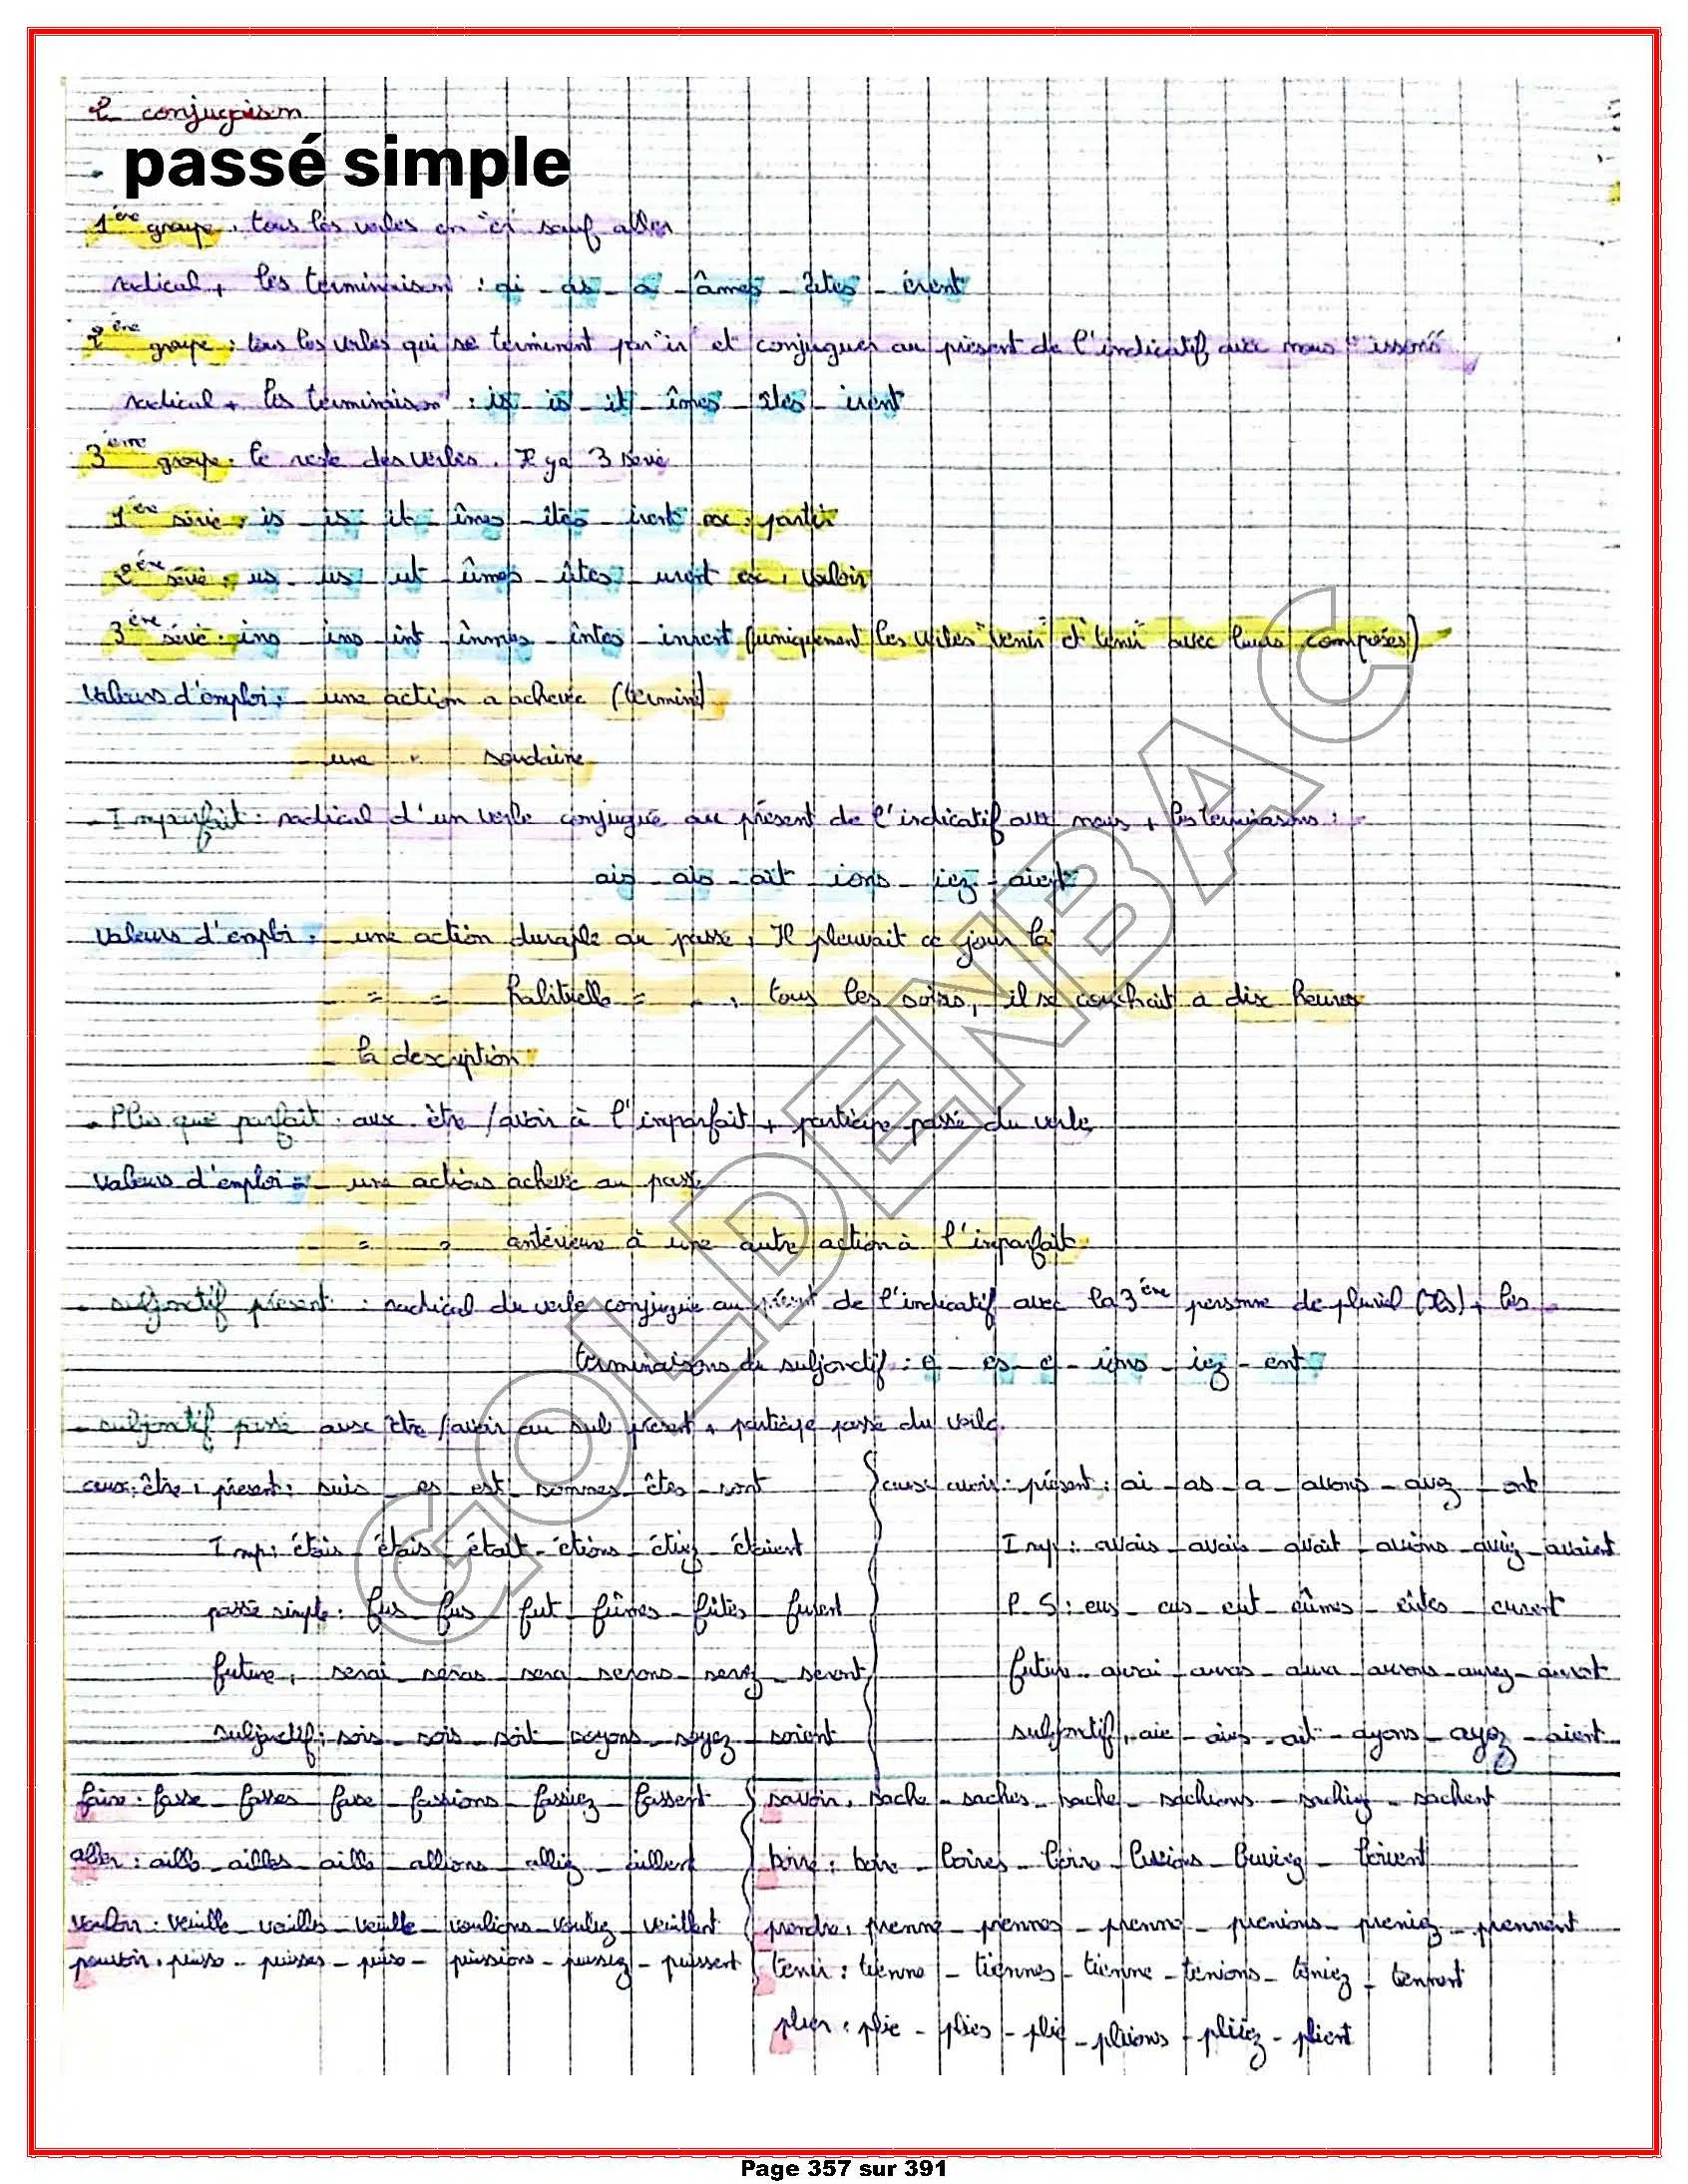 L conjugaison
• passé simple
1ère groupe : tous les verbes en "er" sauf aller
radical + les terminaison : ai - as - a - âmes - âtes - èrent
2ème groupe : tous les verbes qui se terminent par "ir" et conjuguer au présent de l'indicatif avec nous "issons"
radical + les terminaison : is - is - it - îmes - îtes - irent
3ème groupe : le reste des verbes. Il ya 3 série
1ère série : is - is - it - îmes - îtes - irent ex : partir
2ère série : us - us - ut - ûmes - ûtes - urent ex : valoir
3ère série : ins - ins - int - înmes - întes - inrent (uniquement les verbes "venir" et "tenir" avec leurs composés)
Valeurs d'emploi : - une action a achevée (terminé)
- une " soudaine
- Imparfait : radical d'un verbe conjugué au présent de l'indicatif avec nous + les terminaisons :
ais - ais - ait - ions - iez - aient
Valeurs d'emploi : - une action durable au passé : Il pleuvait ce jour là
- = = habituelle = = : tous les soirs, il se couchait a dix heures
- la description
- Plus que parfait : aux. être / avoir à l'imparfait + participe passé du verbe
Valeurs d'emploi : - une actions achevée au passé
- = = antérieure à une autre action à l'imparfait
- subjonctif présent : radical du verbe conjugué au présent de l'indicatif avec la 3ère personne de pluriel (Ils) + les
terminaisons du subjonctif : e - es - e - ions - iez - ent
- subjonctif passé aux être / avoir au sub présent + participe passé du verbe.
aux : être : présent : suis - es - est - sommes - êtes - sont
aux : avoir : présent : ai - as - a - avons - avez - ont
Imp : étais - étais - était - étions - étiez - étaient
Imp : avais - avais - avait - avions - aviez - avaient
passé simple : fus - fus - fut - fûmes - fûtes - furent
P.S : eus - eus - eut - eûmes - eûtes - eurent
future : serai - seras - sera - serons - serez - seront
future : aurai - auras - aura - aurons - aurez - auront
subjonctif : sois - sois - soit - soyons - soyez - soient
subjonctif : aie - aies - ait - ayons - ayez - aient
faire : fasse - fasses - fasse - fassions - fassiez - fassent
savoir : sache - saches - sache - sachions - sachiez - sachent
aller : aille - ailles - aille - allions - alliez - aillent
boire : boive - boives - boive - buvions - buviez - boivent
vouloir : veuille - veuilles - veuille - voulions - vouliez - veuillent
prendre : prenne - prennes - prenne - prenions - preniez - prennent
pouvoir : puisse - puisses - puisse - puissions - puissiez - puissent
tenir : tienne - tiennes - tienne - tenions - teniez - tiennent
plier : plie - plies - plie - pliions - pliiez - plient
GOLDENBAC
Page 357 sur 391